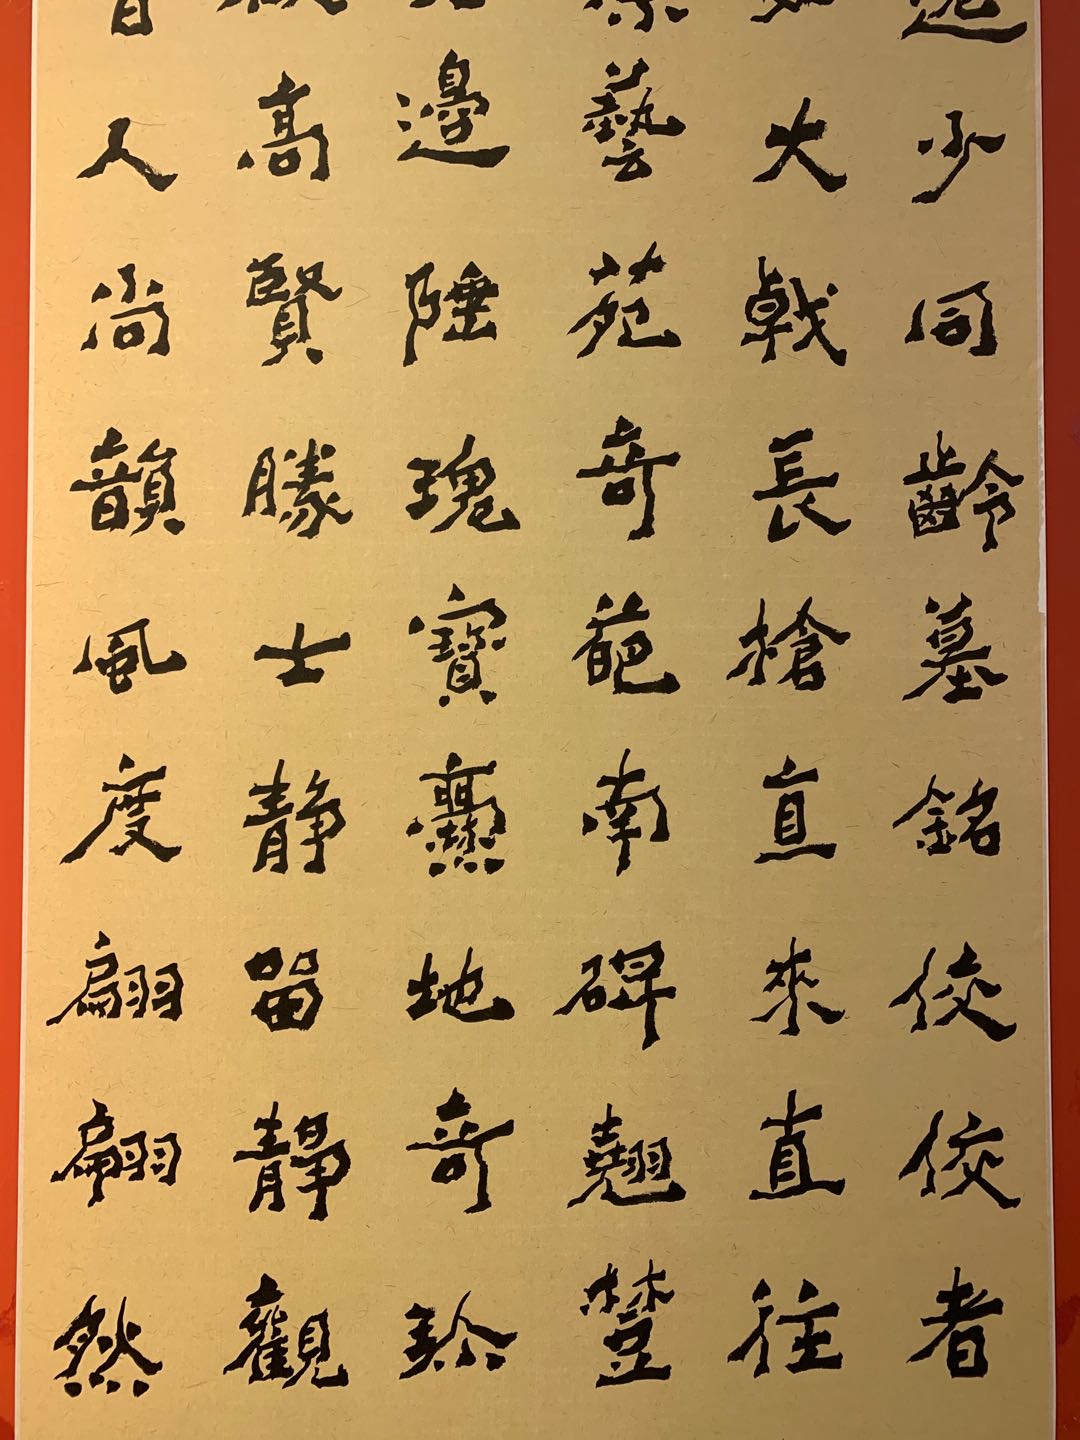 少同齡墓銘佼佼者
如大戟長槍直來直往
藝苑奇葩南碑翹楚
邊陲瑰寶爨地奇珍
高賢勝士静留靜觀
晋人尚韻風度翩翩然